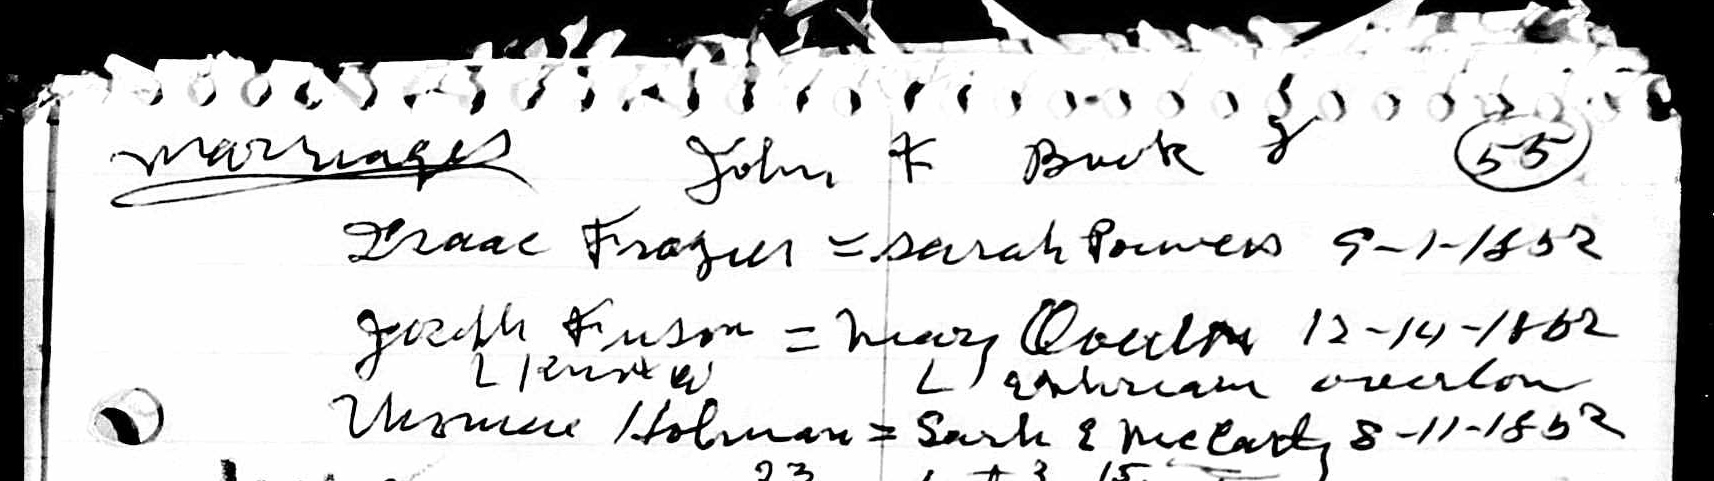 Marriages John F Buck 55
Isaac Frazier = Sarah Powers 9-1-1852
Joseph Fuson = Mary Overton 12-14-1852
L Ephream overlon
Thomas Holman = Sarh E McCarty 8-11-1852